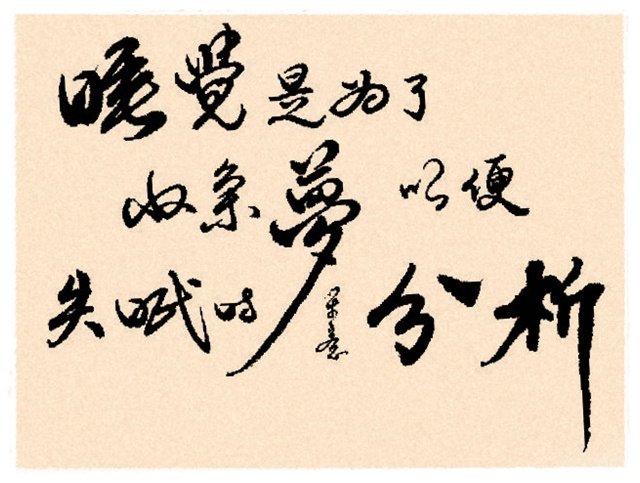 睡覺是为了
收集夢以便
失眠时分析